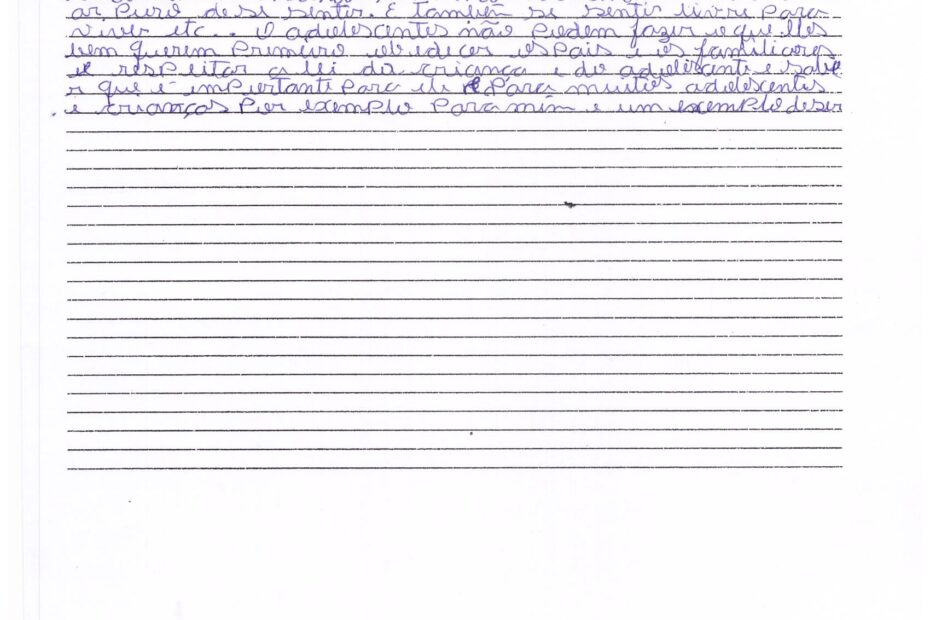 ar Puro de se sentir. E também se sentir livre para
viver etc.. O adolescentes não Podem fazer o que eles
bem querem Primeiro obidecer os pais e os familiares
e respeitar a lei da criança e do adolescente e sabe
r que é importante Para ele e Para muitos adolescentes
e crianças Por exemplo Para mim e um exemplo de ser